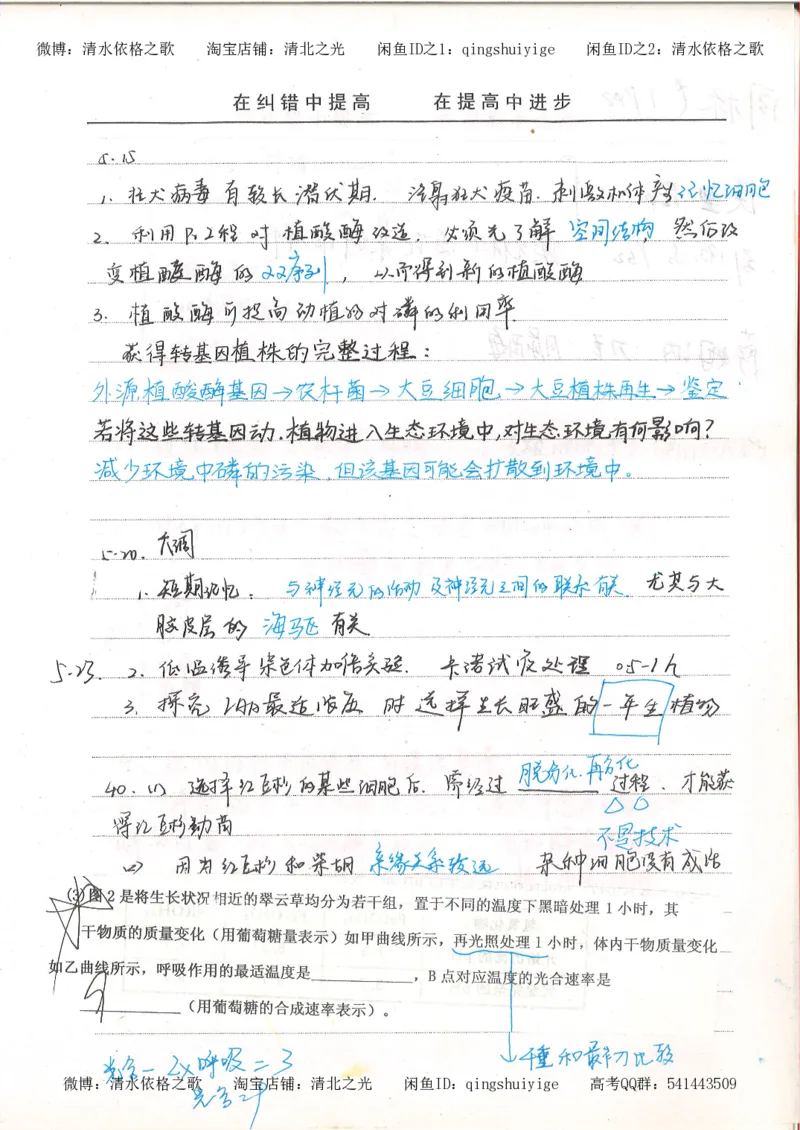 微博：清水依格之歌 淘宝店铺：清北之光 闲鱼ID之1：qingshuiyige 闲鱼ID之2：清水依格之歌
在纠错中提高 在提高中进步
5.15
1. 狂犬病毒有较长潜伏期. 注射狂犬疫苗.刺激机体产生记忆细胞
2. 利用Pr工程对植酸酶改造，必须先了解空间结构，然后改
变植酸酶的序列，从而得到新的植酸酶
3. 植酸酶可提高动植物对磷的利用率
获得转基因植株的完整过程：
外源植酸酶基因→农杆菌→大豆细胞→大豆植株再生→鉴定
若将这些转基因动.植物进入生态环境中,对生态环境有何影响?
减少环境中磷的污染,但该基因可能会扩散到环境中。
5-20.
1. 短期记忆. 与神经元的活动及神经元之间的联系有关. 尤其与大
脑皮层的海马区有关
5-23. 2. 低温诱导染色体加倍实验. 卡诺试液处理 0.5-1h
3. 探究IAA最适浓度时选择生长旺盛的一年生植物
40. (1) 选择红豆杉的某些细胞后. 需经过脱分化.再分化过程.才能获
得红豆杉幼苗
不是技术
(2) 因为红豆杉和柴胡亲缘关系较远 杂种细胞没有成活
(3)图2是将生长状况相近的翠云草均分为若干组，置于不同的温度下黑暗处理1小时，其
干物质的质量变化（用葡萄糖量表示）如甲曲线所示，再光照处理1小时，体内干物质质量变化
如乙曲线所示，呼吸作用的最适温度是____________，B点对应温度的光合速率是
____________（用葡萄糖的合成速率表示）。
光合-2×呼吸=3
干重和最初比较
微博：清水依格之歌 淘宝店铺：清北之光 闲鱼ID：qingshuiyige 高考QQ群：541443509